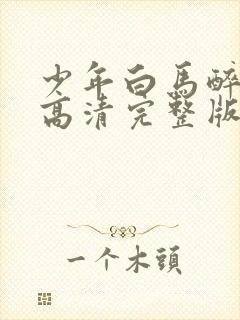 少年白馬醉
高清完整版
一个木頭